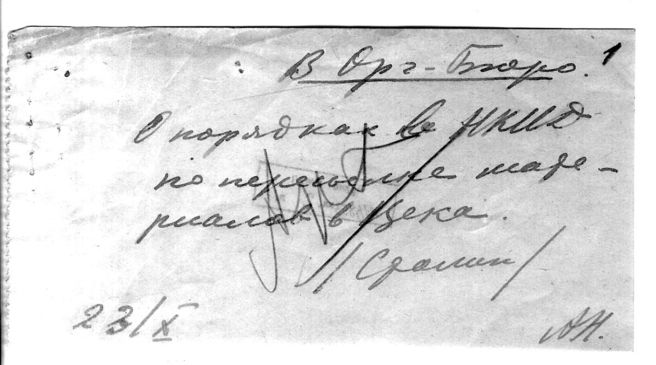 В Орг-Бюро. 1
О порядках в НКИД
по пересылке мате-
риалов в Цека.
/Сталин/
23/X
АН.